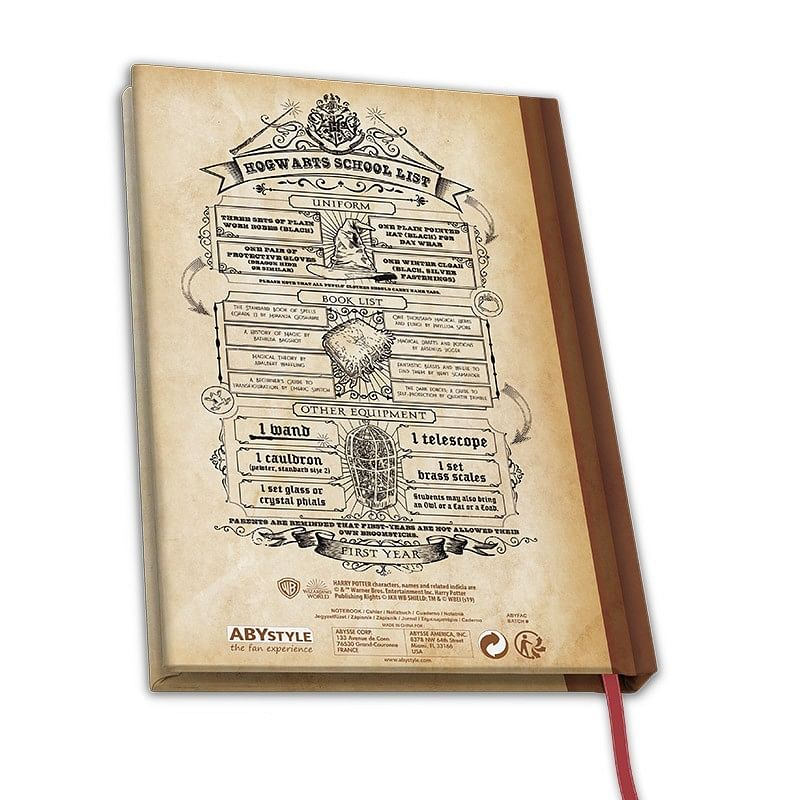 HOGWARTS SCHOOL LIST
UNIFORM
THREE SETS OF PLAIN
WORK ROBES (BLACK)
ONE PLAIN POINTED
HAT (BLACK) FOR
DAY WEAR
ONE PAIR OF
PROTECTIVE GLOVES
(DRAGON HIDE
OR SIMILAR)
ONE WINTER CLOAK
(BLACK, SILVER
FASTENINGS)
PLEASE NOTE THAT ALL PUPILS' CLOTHES SHOULD CARRY NAME TAGS.
BOOK LIST
THE STANDARD BOOK OF SPELLS
(GRADE 1) BY MIRANDA GOSHAWK
ONE THOUSAND MAGICAL HERBS
AND FUNGI BY PHYLLIDA SPORE
A HISTORY OF MAGIC BY
BATHILDA BAGSHOT
MAGICAL DRAFTS AND POTIONS
BY ARSENIUS JIGGER
MAGICAL THEORY BY
ADALBERT WAFFLING
FANTASTIC BEASTS AND WHERE TO
FIND THEM BY NEWT SCAMANDER
A BEGINNER'S GUIDE TO
TRANSFIGURATION BY EMERIC SWITCH
THE DARK FORCES: A GUIDE TO
SELF-PROTECTION BY QUENTIN TRIMBLE
OTHER EQUIPMENT
1 wand
1 telescope
1 cauldron
(pewter, standard size 2)
1 set
brass scales
1 set glass or
crystal phials
Students may also bring
an Owl or a Cat or a Toad.
PARENTS ARE REMINDED THAT FIRST-YEARS ARE NOT ALLOWED THEIR
OWN BROOMSTICKS.
FIRST YEAR
WB
WIZARDING
WORLD
HARRY POTTER characters, names and related indicia are
© & ™ Warner Bros. Entertainment Inc. Harry Potter
Publishing Rights © JKR WB SHIELD: TM & © WBEI (s19)
NOTEBOOK / Cahier / Notizbuch / Cuaderno / Notatnik
MADE IN CHINA FOR
ABYFAC
BATCH #
ABYSTYLE
the fan experience
ABYSSE CORP.
133 Avenue de Caen
76530 Grand-Couronne
FRANCE
ABYSSE AMERICA, INC.
8378 NW 64th Street
Miami, FL 33166
USA
www.abystyle.com